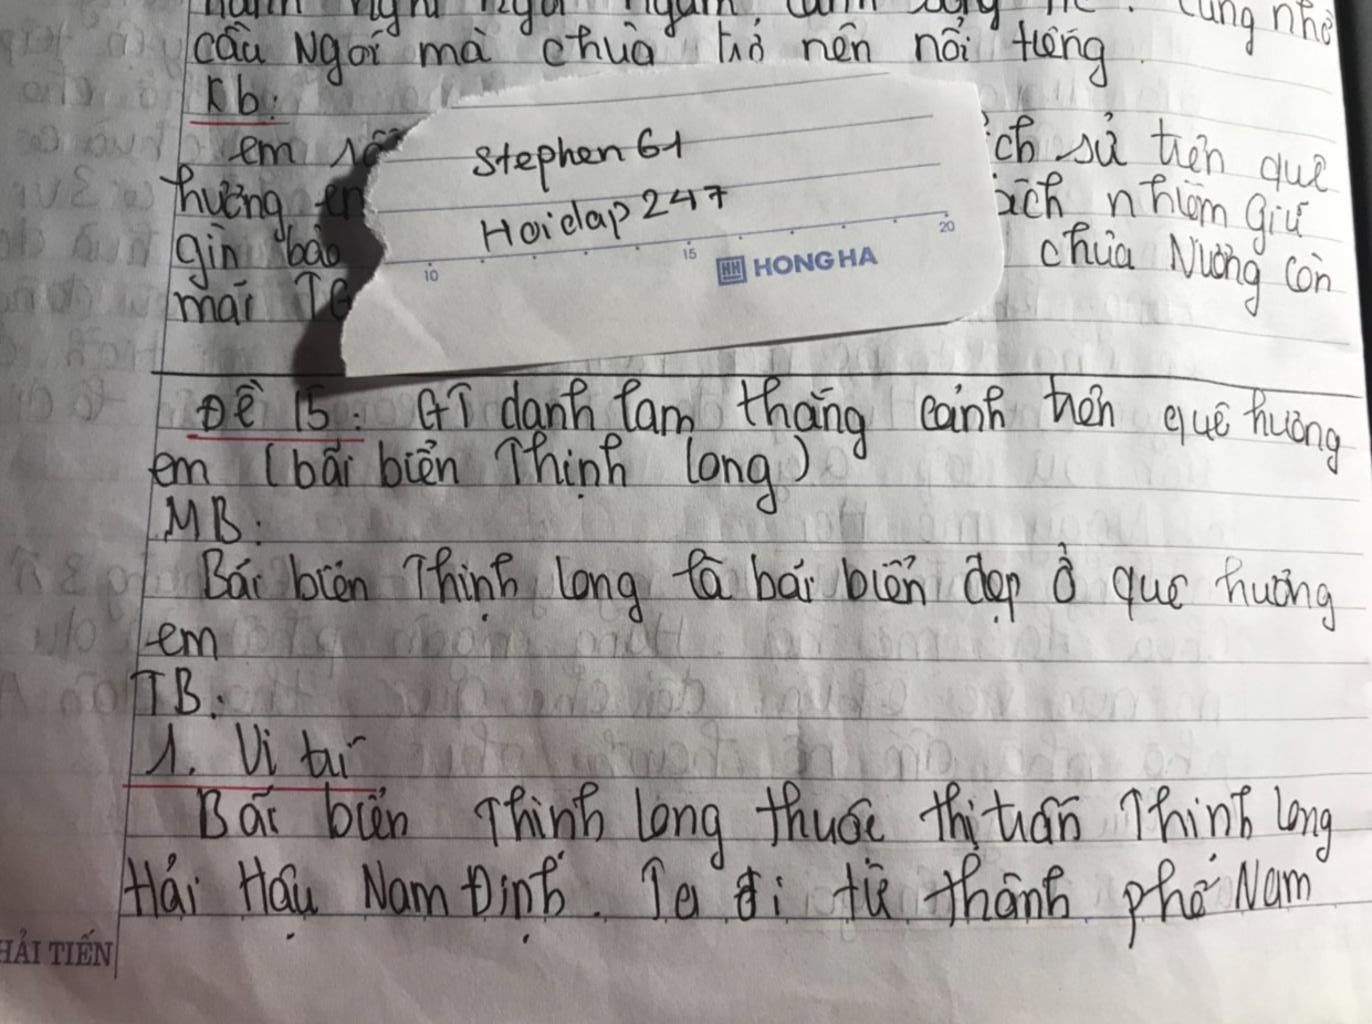 hành nghỉ ngơi ngắm cũng nhờ
cầu Ngói mà chùa trở nên nổi tiếng
Kb:
em sẽ ịch sử trên quê
hương em ách nhiệm giữ
gìn bảo chùa Nương còn
mãi TG
Stephen 61
Hoidap 247
10 15 20
HH HONG HA
Đề 15: GT danh lam thắng cảnh trên quê hương
em (bãi biển Thịnh Long)
MB:
Bãi biển Thịnh Long là bãi biển đẹp ở quê hương
em
TB:
1. Vị trí
Bãi biển Thịnh Long thuộc thị trấn Thịnh Long
Hải Hậu Nam Định. Ta đi từ thành phố Nam
HẢI TIẾN